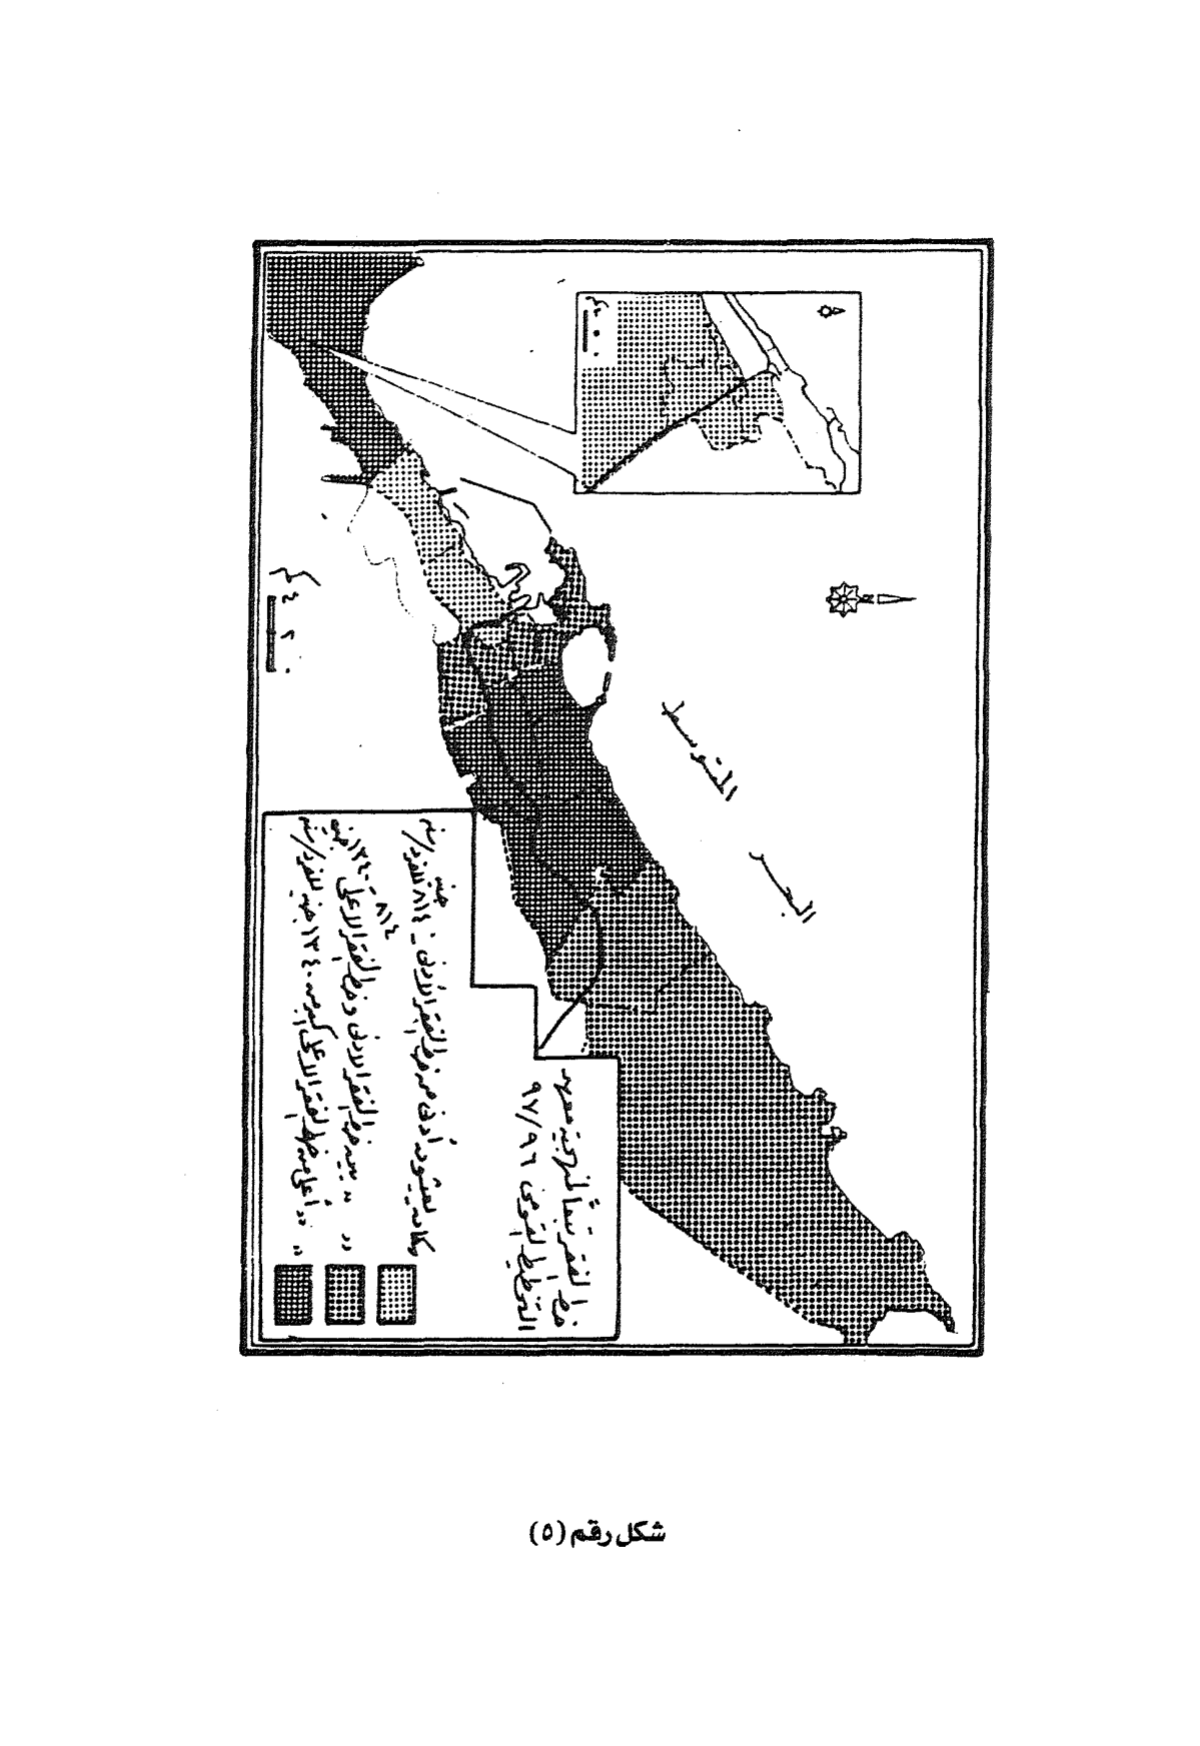 البحر
المتوسط
خط الفقر تبعاً لمنهجية معهد
التخطيط القومى ٩٧/٩٦
سكان يعيشون أدنى من خط الفقر الأدنى - ٨١٤ جنيه للفرد/سنه
" " بين خط الفقر الأدنى وخط الفقر الأعلى ٨١٤ - ١٣٤٠ جنيه
" " أعلى من خط الفقر الأعلى أكبر من ١٣٤٠ جنيه للفرد/سنه
٠ ٢ ٤ كم
شكل رقم (٥)